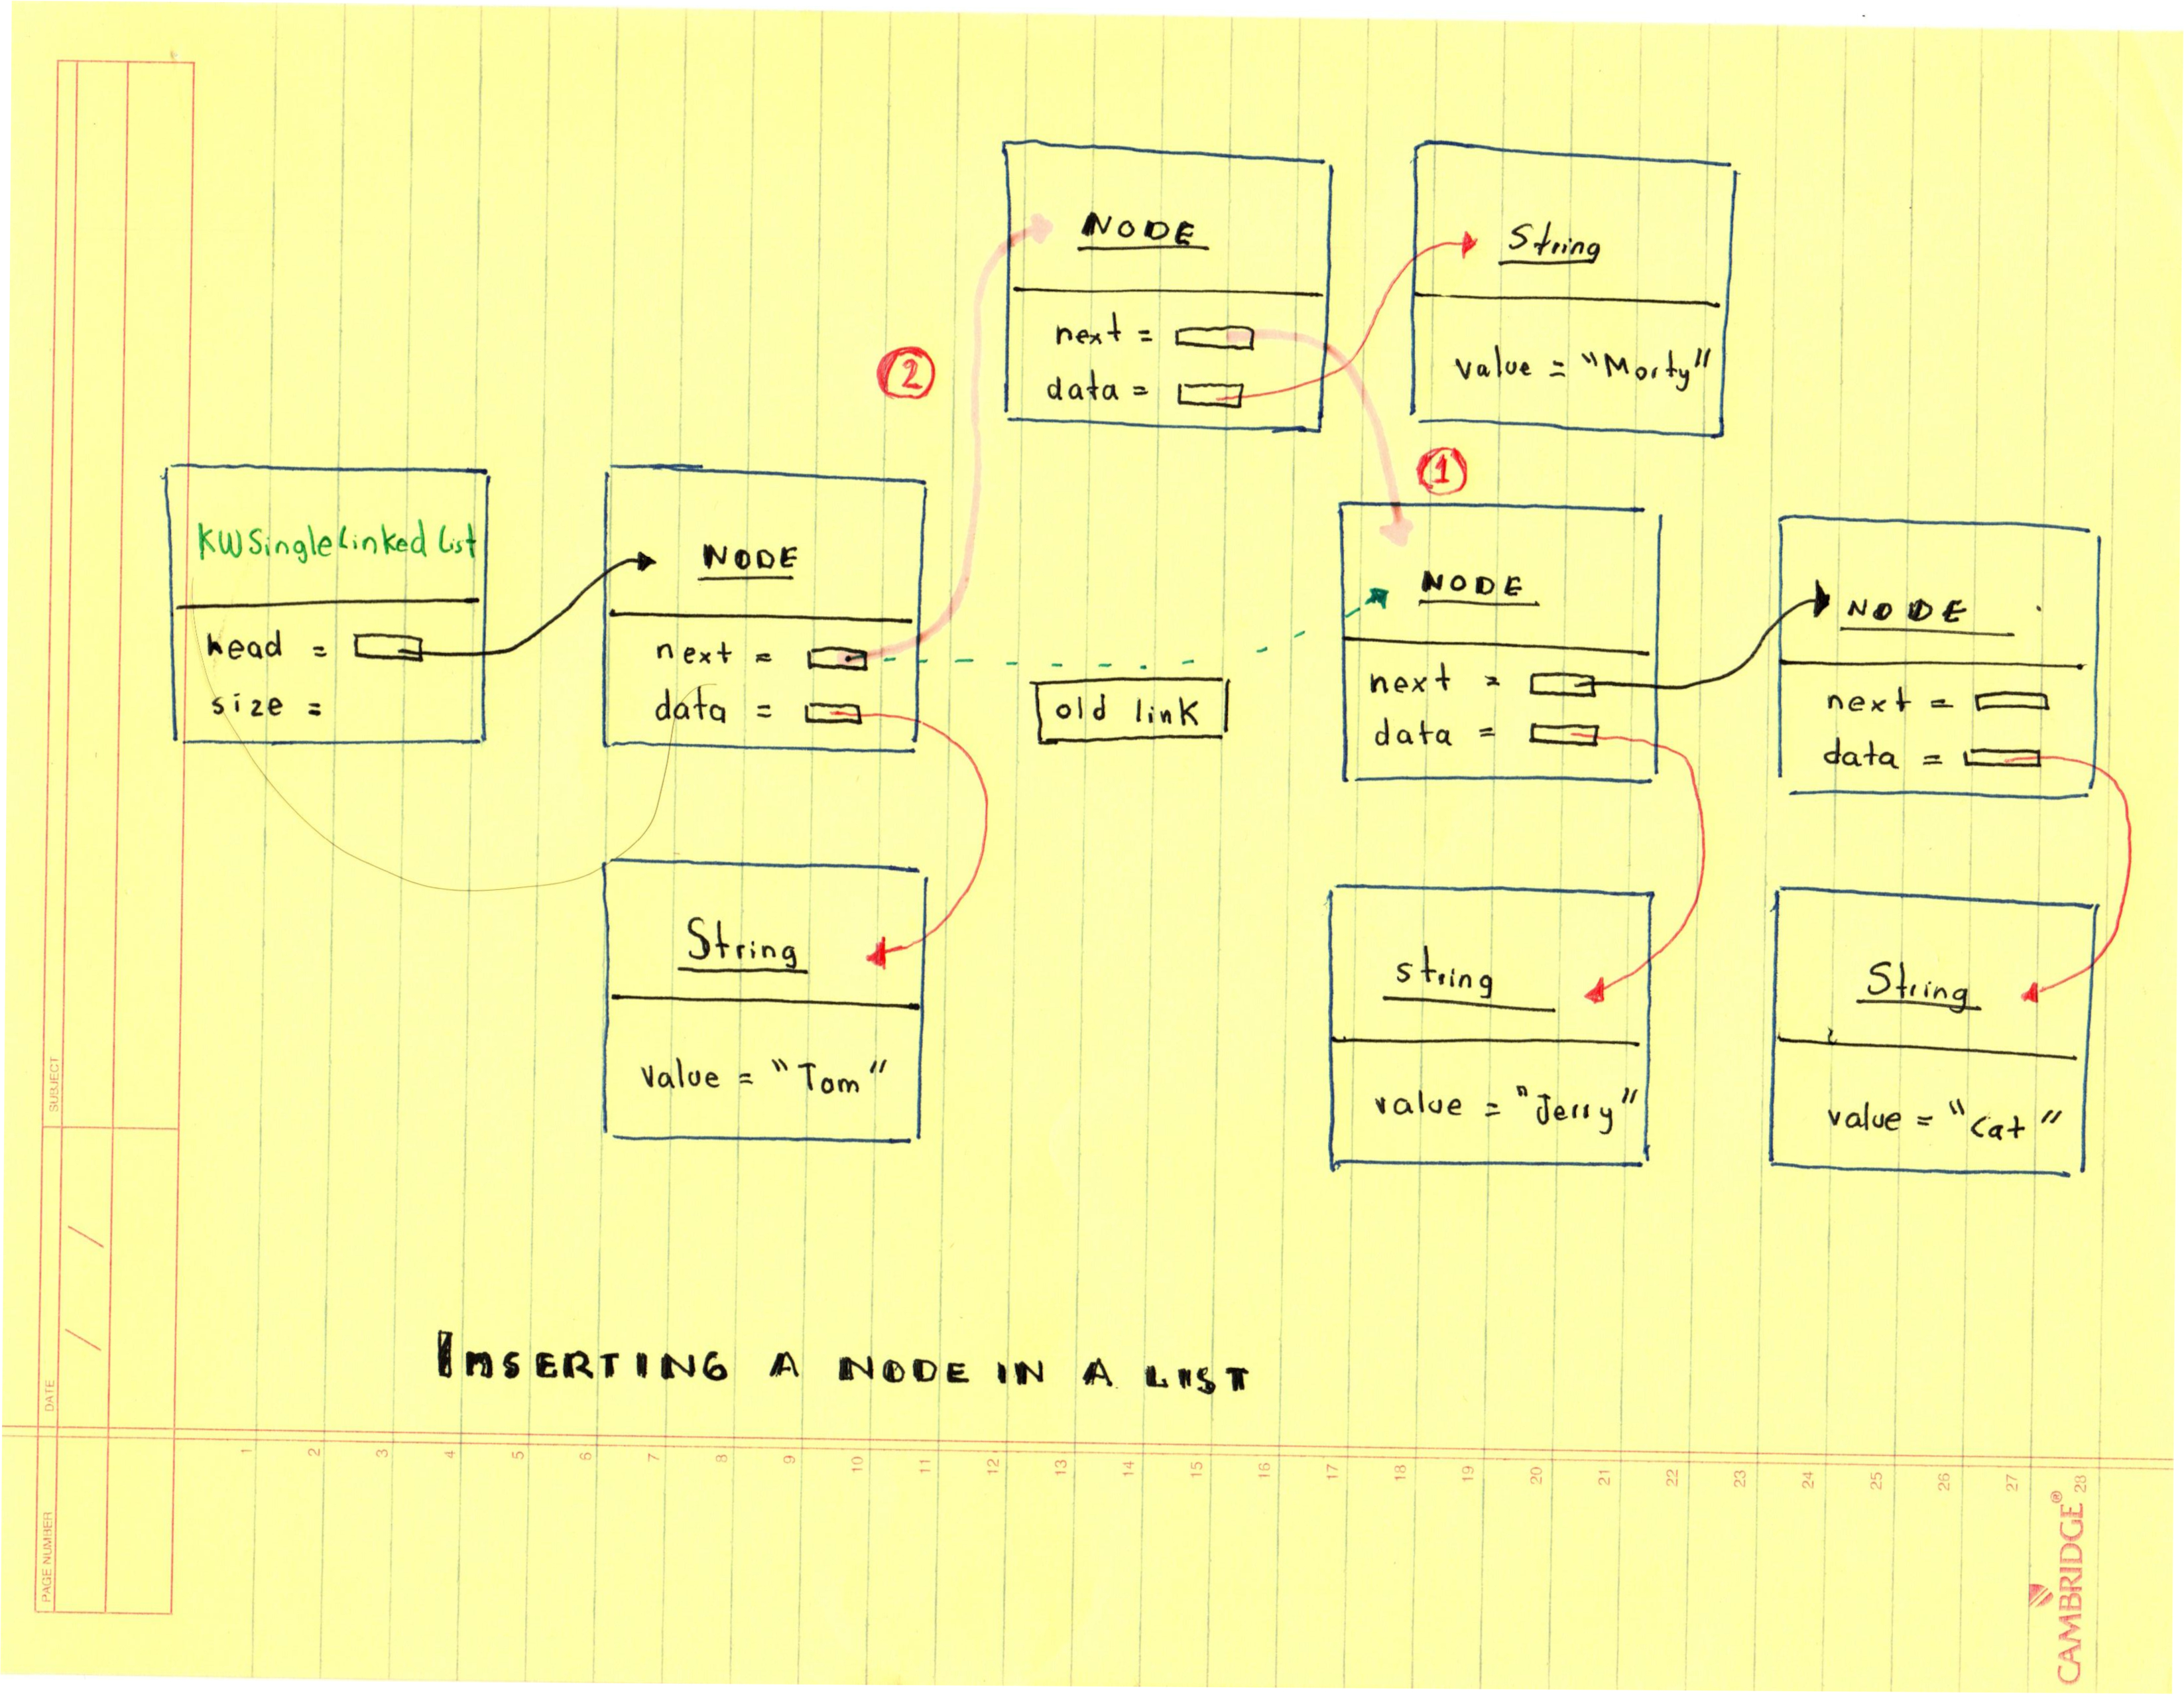 NODE
next =
data =
String
value = "Morty"
2
1
KWSingleLinked List
head =
size =
NODE
next =
data =
old link
NODE
next =
data =
NODE
next =
data =
String
value = "Tom"
string
value = "Jerry"
String
value = "Cat"
INSERTING A NODE IN A LIST
SUBJECT
DATE
PAGE NUMBER
1 2 3 4 5 6 7 8 9 10 11 12 13 14 15 16 17 18 19 20 21 22 23 24 25 26 27 28
CAMBRIDGE®